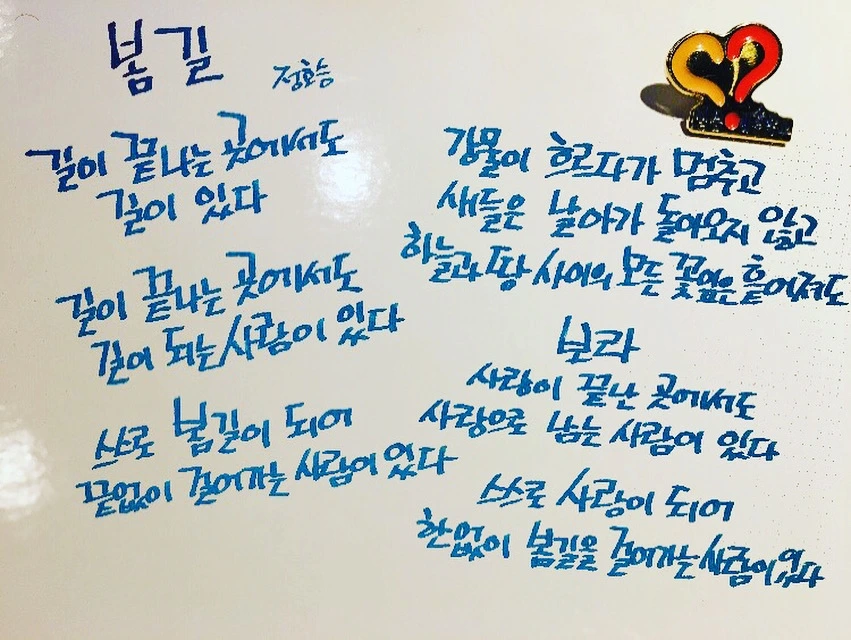 봄길
정호승
길이 끝나는 곳에서도
길이 있다
길이 끝나는 곳에서도
길이 되는 사람이 있다
쓰스로 봄길이 되어
끝없이 걸어가는 사람이 있다
강물이 흐르다가 멈추고
새들은 날아가 돌아오지 않고
하늘과 땅 사이의 모든 꽃잎은 흩어져도
보라
사랑이 끝난 곳에서도
사랑으로 남는 사람이 있다
스스로 사랑이 되어
한없이 봄길을 걸어가는 사람이 있다